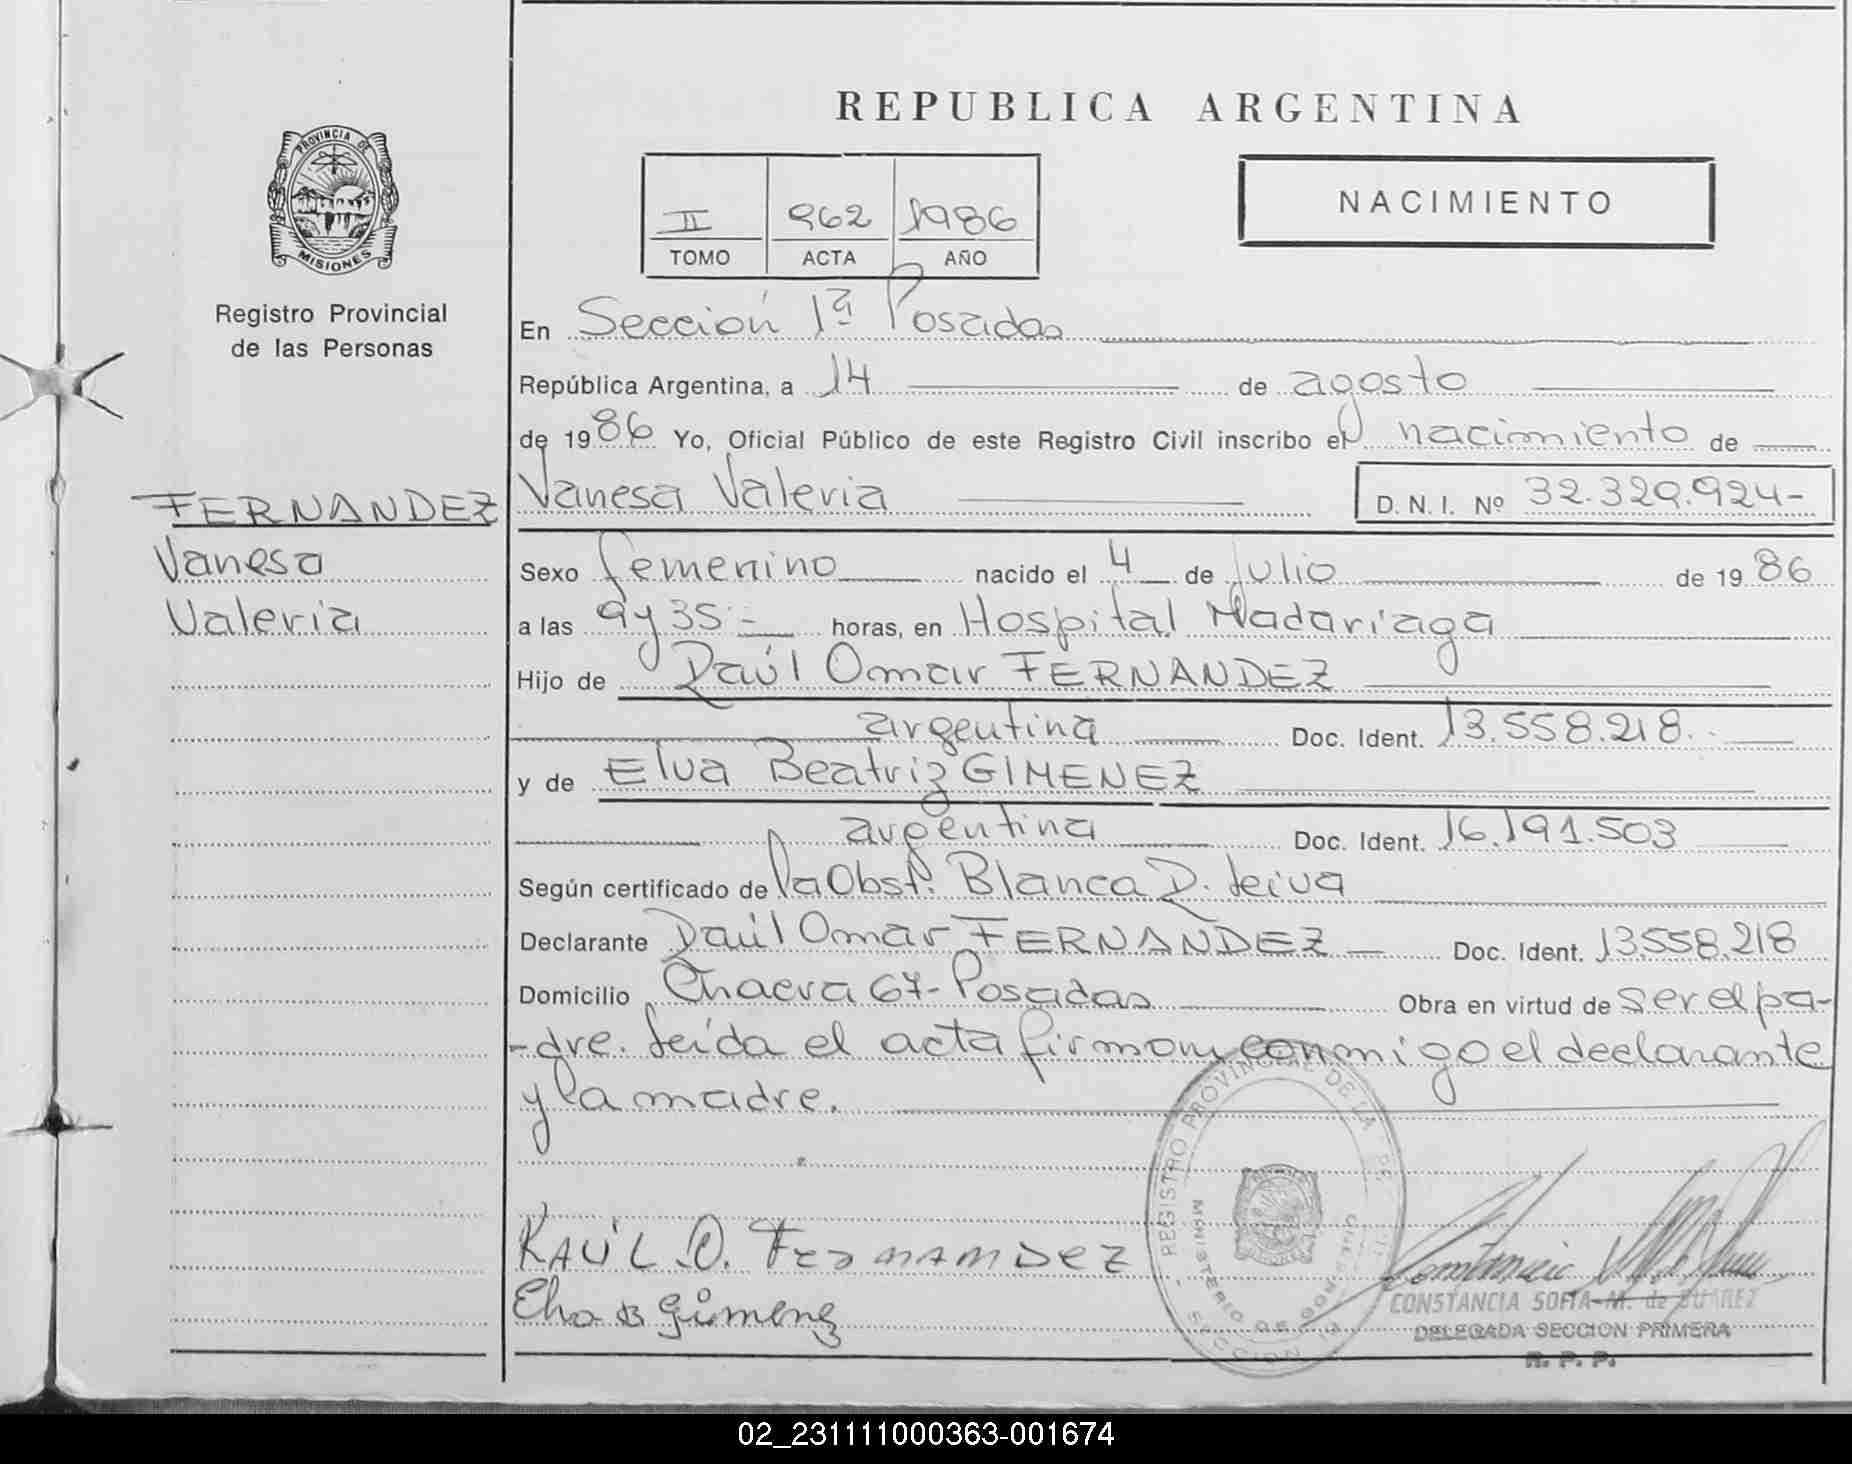 REPUBLICA ARGENTINA
PROVINCIA DE
MISIONES
Registro Provincial
de las Personas
II 962 1986
TOMO ACTA AÑO
NACIMIENTO
En Sección 1ª Posadas
República Argentina, a 14 de agosto
de 1986 Yo, Oficial Público de este Registro Civil inscribo el nacimiento de
FERNANDEZ
Vanesa
Valeria
Vanesa Valeria D. N. I. Nº 32.329.924-
Sexo femenino nacido el 4 de Julio de 1986
a las 9 y 35 - horas, en Hospital Madariaga
Hijo de Raúl Omar FERNANDEZ
argentina Doc. Ident. 13.558.218.
y de Elva Beatriz GIMENEZ
argentina Doc. Ident. 16.191.503
Según certificado de la Obst. Blanca D. Leiva
Declarante Raúl Omar FERNANDEZ Doc. Ident. 13.558.218
Domicilio Chacra 67- Posadas Obra en virtud de ser el pa-
-dre. Leída el acta firman conmigo el declarante
y la madre.
REGISTRO PROVINCIAL DE LA
MINISTERIO DE GOBIERNO
SECCION
RAÚL O. FERNANDEZ
Elva B Gimenez
CONSTANCIA SOFIA M. de SUAREZ
DELEGADA SECCION PRIMERA
R. P. P.
02_231111000363-001674